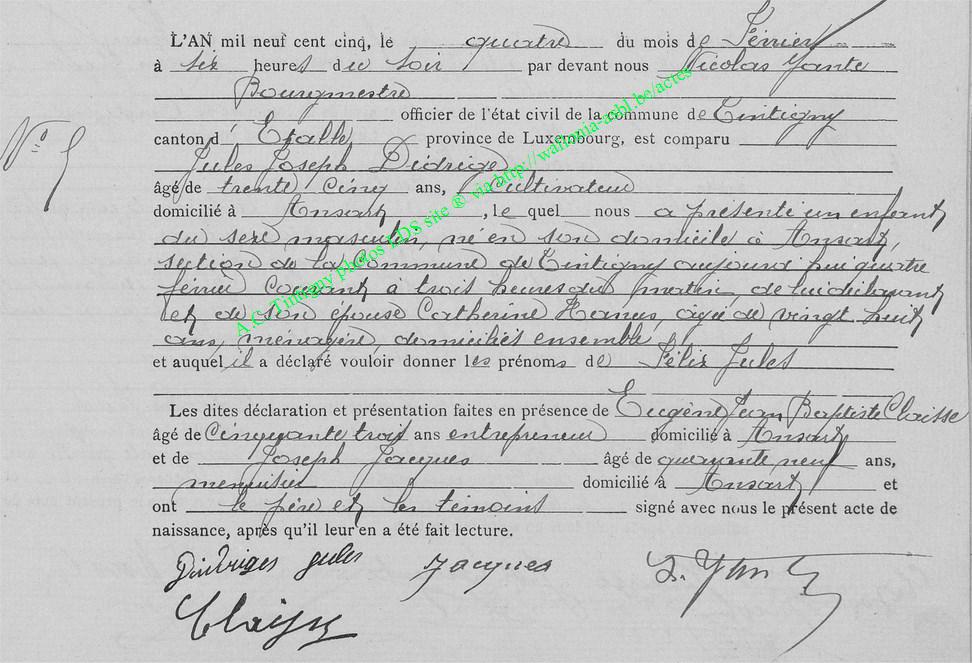 L'AN mil neuf cent cinq, le quatre du mois de Février
à six heures du soir par devant nous Nicolas Yante
Bourgmestre
officier de l'état civil de la commune de Tintigny
canton d'Etalle province de Luxembourg, est comparu
N° 5
Jules Joseph Didrige
âgé de trente cinq ans, Cultivateur
domicilié à Ansart, le quel nous a présenté un enfant
du sexe masculin, né en son domicile à Ansart,
section de la Commune de Tintigny aujourd'hui quatre
février courant à trois heures du matin, de lui déclarant
et de son épouse Catherine Hanus, âgée de vingt huit
ans, ménagère, domiciliés ensemble
et auquel il a déclaré vouloir donner les prénoms de Félix Jules
Les dites déclaration et présentation faites en présence de Eugène Jean Baptiste Claisse
âgé de Cinquante trois ans entrepreneur domicilié à Ansart
et de Joseph Jacques âgé de quarante neuf ans,
menuisier domicilié à Ansart et
ont le père et les témoins signé avec nous le présent acte de
naissance, après qu'il leur en a été fait lecture.
Jules Jacques
Claisse
A.C. Tintigny photos LDS site ® via http://wallonia-asbl.be/actes